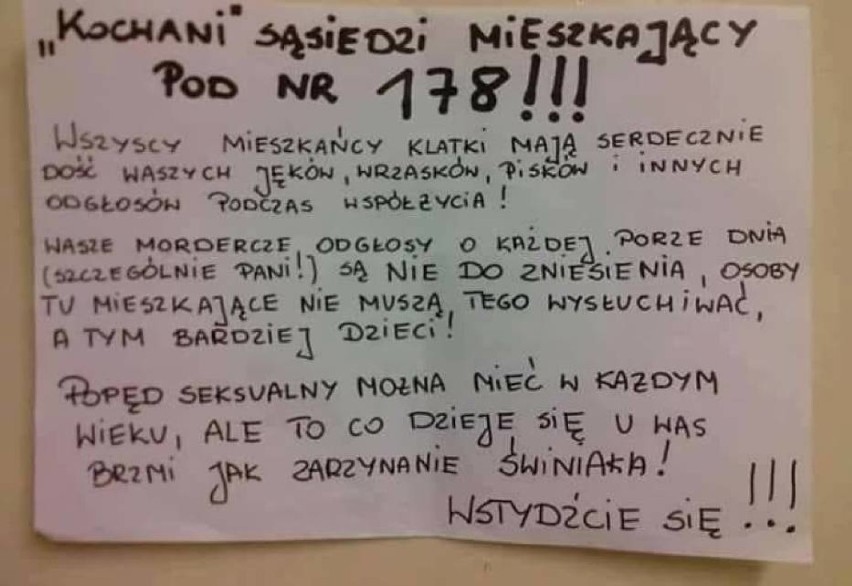 „KOCHANI" SĄSIEDZI MIESZKAJĄCY
POD NR 178!!!
WSZYSCY MIESZKAŃCY KLATKI MAJĄ SERDECZNIE
DOŚĆ WASZYCH JĘKÓW, WRZASKÓW, PISKÓW i INNYCH
ODGŁOSÓW PODCZAS WSPÓŁŻYCIA!
WASZE MORDERCZE ODGŁOSY O KAŻDEJ PORZE DNIA
(SZCZEGÓLNIE PANI!) SĄ NIE DO ZNIESIENIA, OSOBY
TU MIESZKAJĄCE NIE MUSZĄ TEGO WYSŁUCHIWAĆ,
A TYM BARDZIEJ DZIECI!
POPĘD SEKSUALNY MOŻNA MIEĆ W KAŻDYM
WIEKU, ALE TO CO DZIEJE SIĘ U WAS
BRZMI JAK ZARZYNANIE ŚWINIAKA!
WSTYDŹCIE SIĘ !!!